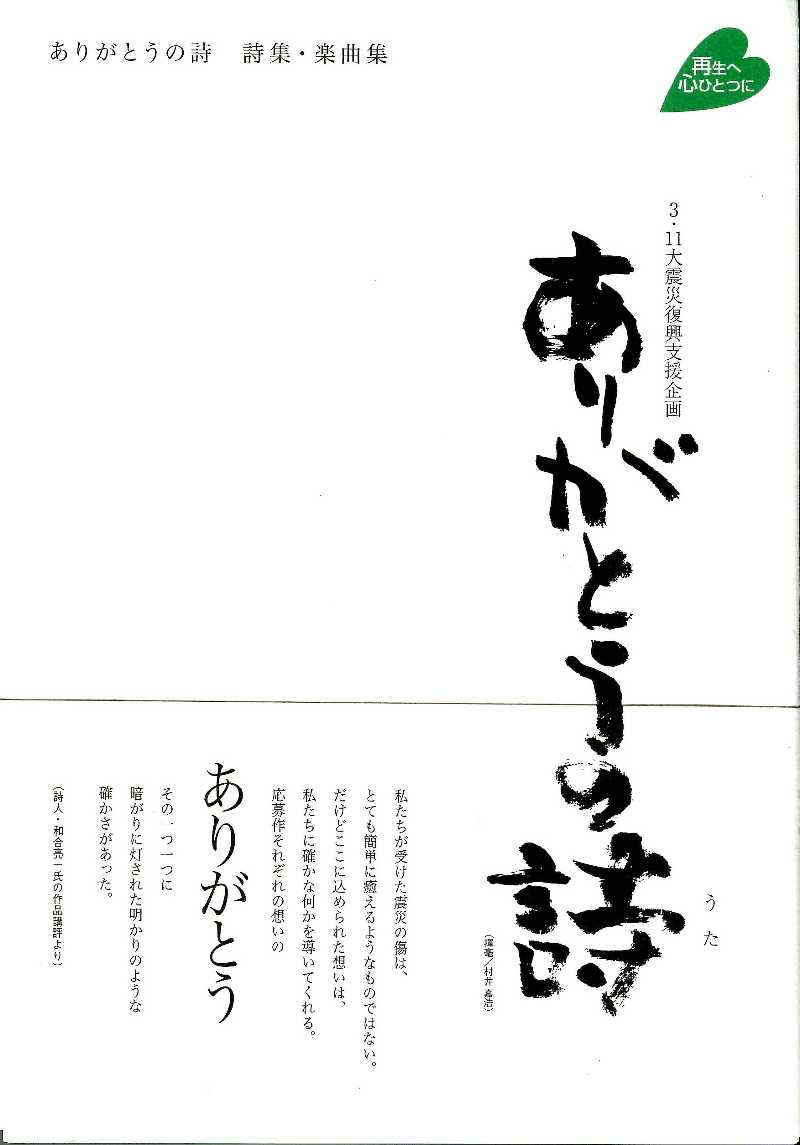 ありがとうの詩　詩集・楽曲集
再生へ
心ひとつに
3・11大震災復興支援企画
ありがとうの詩
うた
(揮毫／村井嘉浩)
私たちが受けた震災の傷は、
とても簡単に癒えるようなものではない。
だけどここに込められた想いは、
私たちに確かな何かを導いてくれる。
応募作それぞれの想いの
ありがとう
その一つ一つに
暗がりに灯された明かりのような
確かさがあった。
(詩人・和合亮一氏の作品講評より)